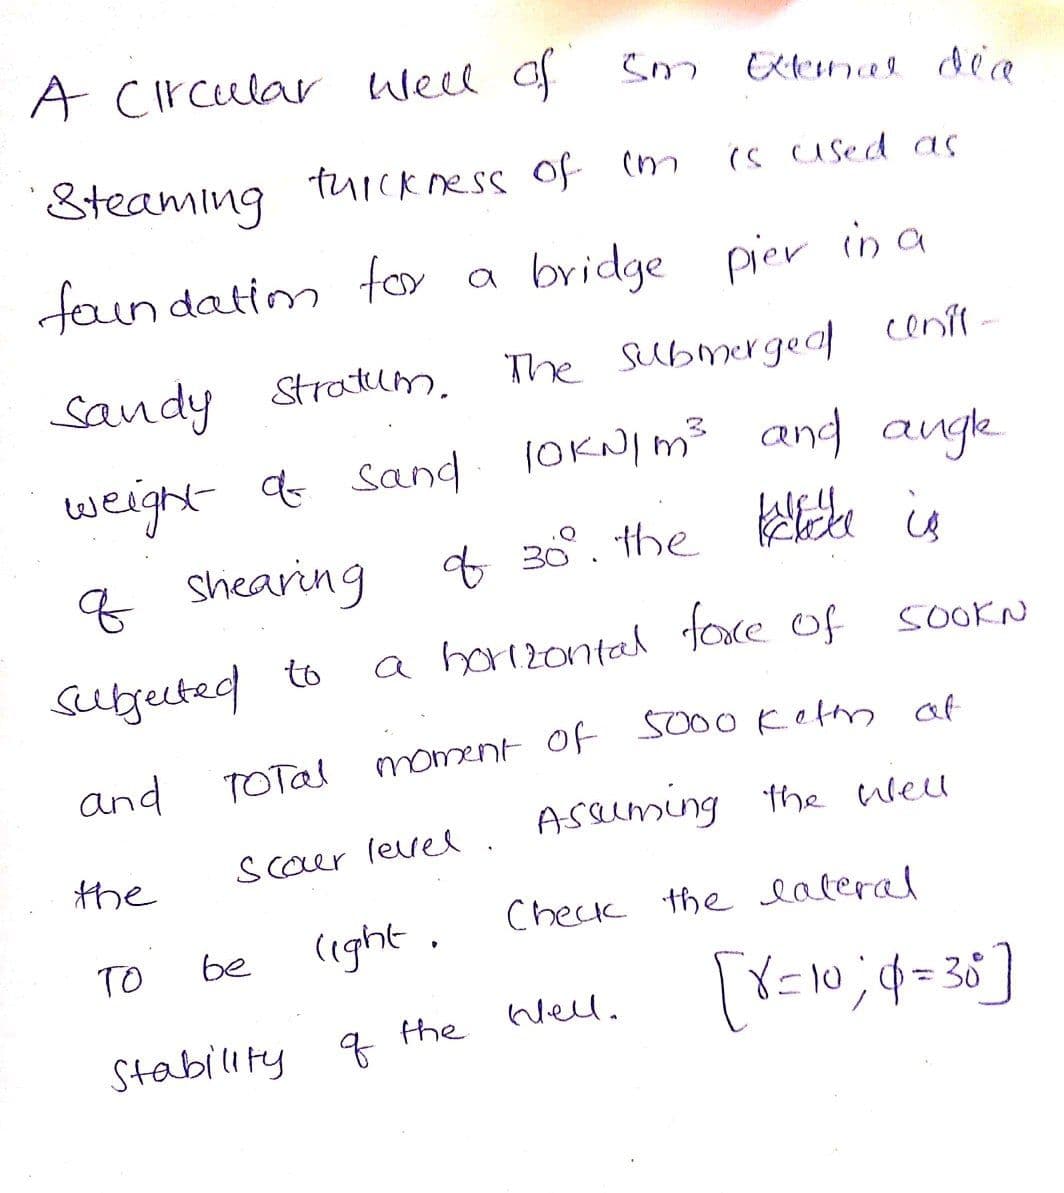 A Circular well of 5m External dia
Steaming thickness of 1m is used as
foundation for a bridge pier in a
sandy stratum. The submerged
weight of sand 10KN/m³ and angle
of shearing of 30°. the well is
subjected to a horizontal force of 500KN
and TOTal moment of 5000 at
the scour level. Assuming the well
TO be light. Check the lateral
stability of the well. [γ=10; φ=30°]